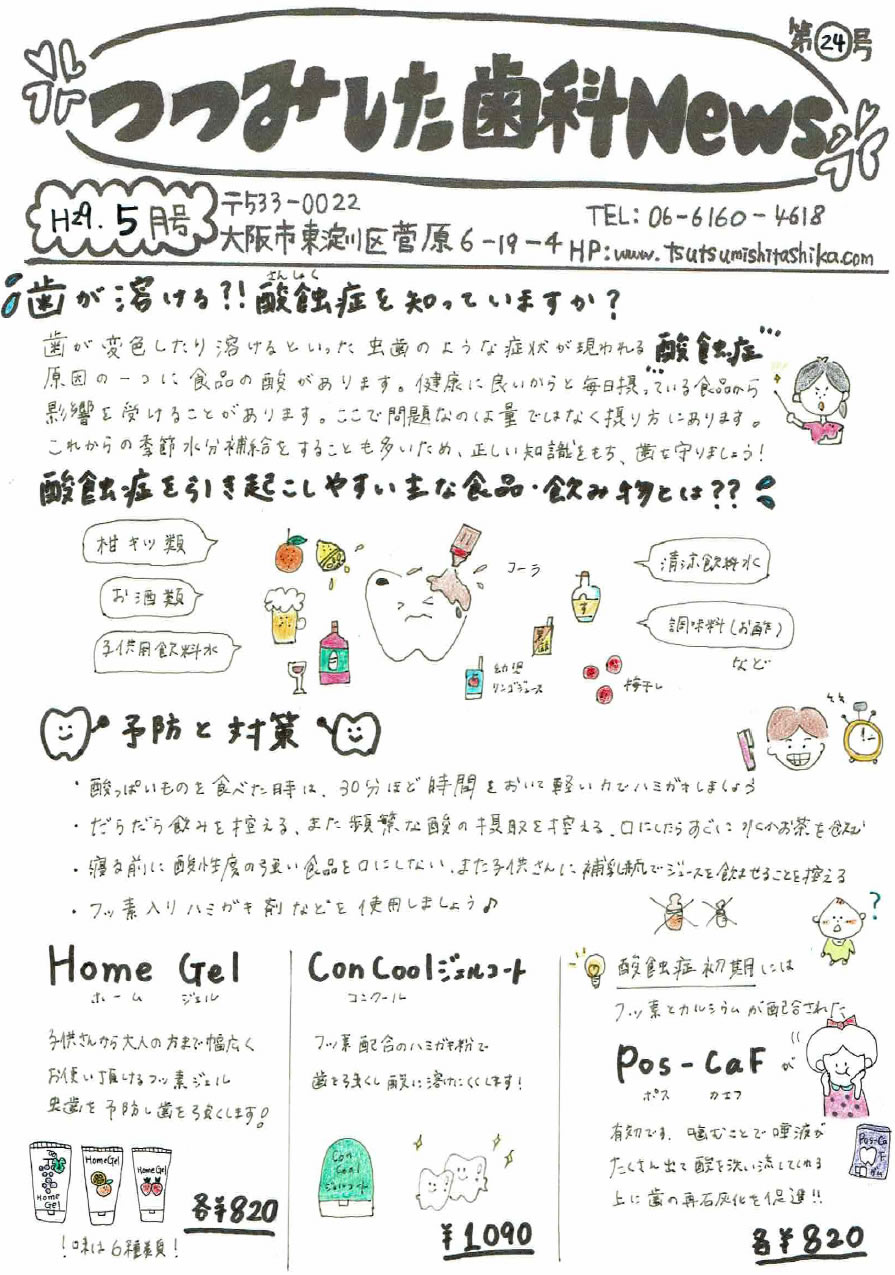 つつみした歯科News
第24号
H29. 5月号
〒533-0022
大阪市東淀川区菅原6-19-4
TEL: 06-6160-4618
HP: www.tsutsumishitashika.com
歯が溶ける?! 酸蝕症を知っていますか?
さんしょく
歯が変色したり溶けるといった虫歯のような症状が現われる酸蝕症
原因の一つに食品の酸があります。健康に良いからと毎日摂っている食品から
影響を受けることがあります。ここで問題なのは量ではなく摂り方にあります。
これからの季節水分補給をすることも多いため、正しい知識をもち、歯を守りましょう!
酸蝕症を引き起こしやすい主な食品・飲み物とは??
柑キツ類
お酒類
子供用飲料水
コーラ
す
黒酢
幼児
リンゴジュース
梅干し
清涼飲料水
調味料(お酢)
など
予防と対策
・酸っぱいものを食べた時は、30分ほど時間をおいて軽い力でハミガキしましょう
・だらだら飲みを控える、また頻繁な酸の摂取を控える、口にしたらすぐに水やお茶を飲む
・寝る前に酸性度の強い食品を口にしない、また子供さんに補乳瓶でジュースを飲ませることを控える
・フッ素入りハミガキ剤などを使用しましょう♪
?
Home Gel
ホーム ジェル
子供さんから大人の方まで幅広く
お使い頂けるフッ素ジェル
虫歯を予防し歯を強くします!
Home Gel
HomeGel
HomeGel
各¥820
!味は6種類!
ConCoolジェルコート
コンクール
フッ素配合のハミガキ粉で
歯を強くし酸に溶けにくくします!
Con Cool ジェルコート
¥1090
酸蝕症初期には
フッ素とカルシウムが配合された
Pos-CaFが
ポス カエフ
有効です。噛むことで唾液が
たくさん出て酸を洗い流してくれる
上に歯の再石灰化を促進!!
Pos-Ca F ガム
各¥820